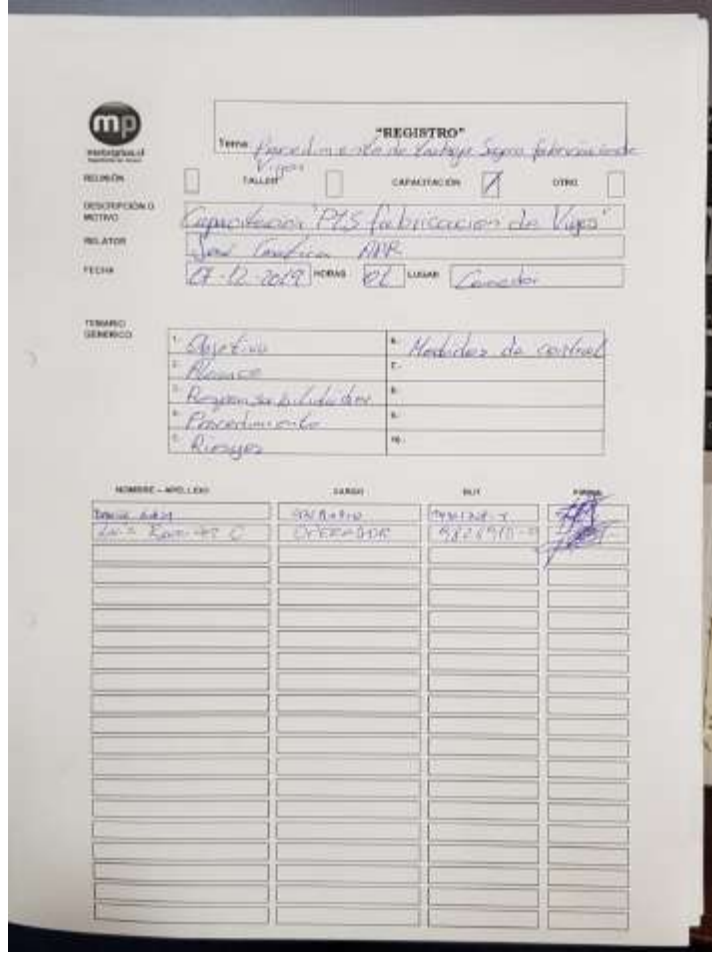 mp
"REGISTRO"
Tema: Procedimiento de trabajo Seguro fabricacion de
Vigas
REUNIÓN TALLER CAPACITACIÓN OTRO
DESCRIPCIÓN O
MOTIVO
Capacitacion "PTS fabricacion de Vigas"
RELATOR
José APR
FECHA
07-12-2019 HORAS 01 LUGAR Comedor
TEMARIO
GENERICO
1.- Objetivo
2.- Alcance
3.- Responsabilidades
4.- Procedimiento
5.- Riesgos
6.- Medidas de control
7.-
8.-
9.-
10.-
NOMBRE – APELLIDO CARGO RUT FIRMA
Luis C OPERADOR